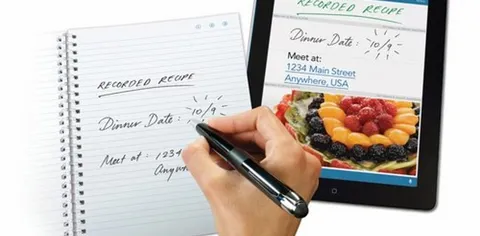 RECORDED RECIPE
Dinner Date : 10/9
Meet at : 1234
Anywh
RECORDED RECIPE
Dinner Date : 10/9
Meet at:
1234 Main Street
Anywhere, USA